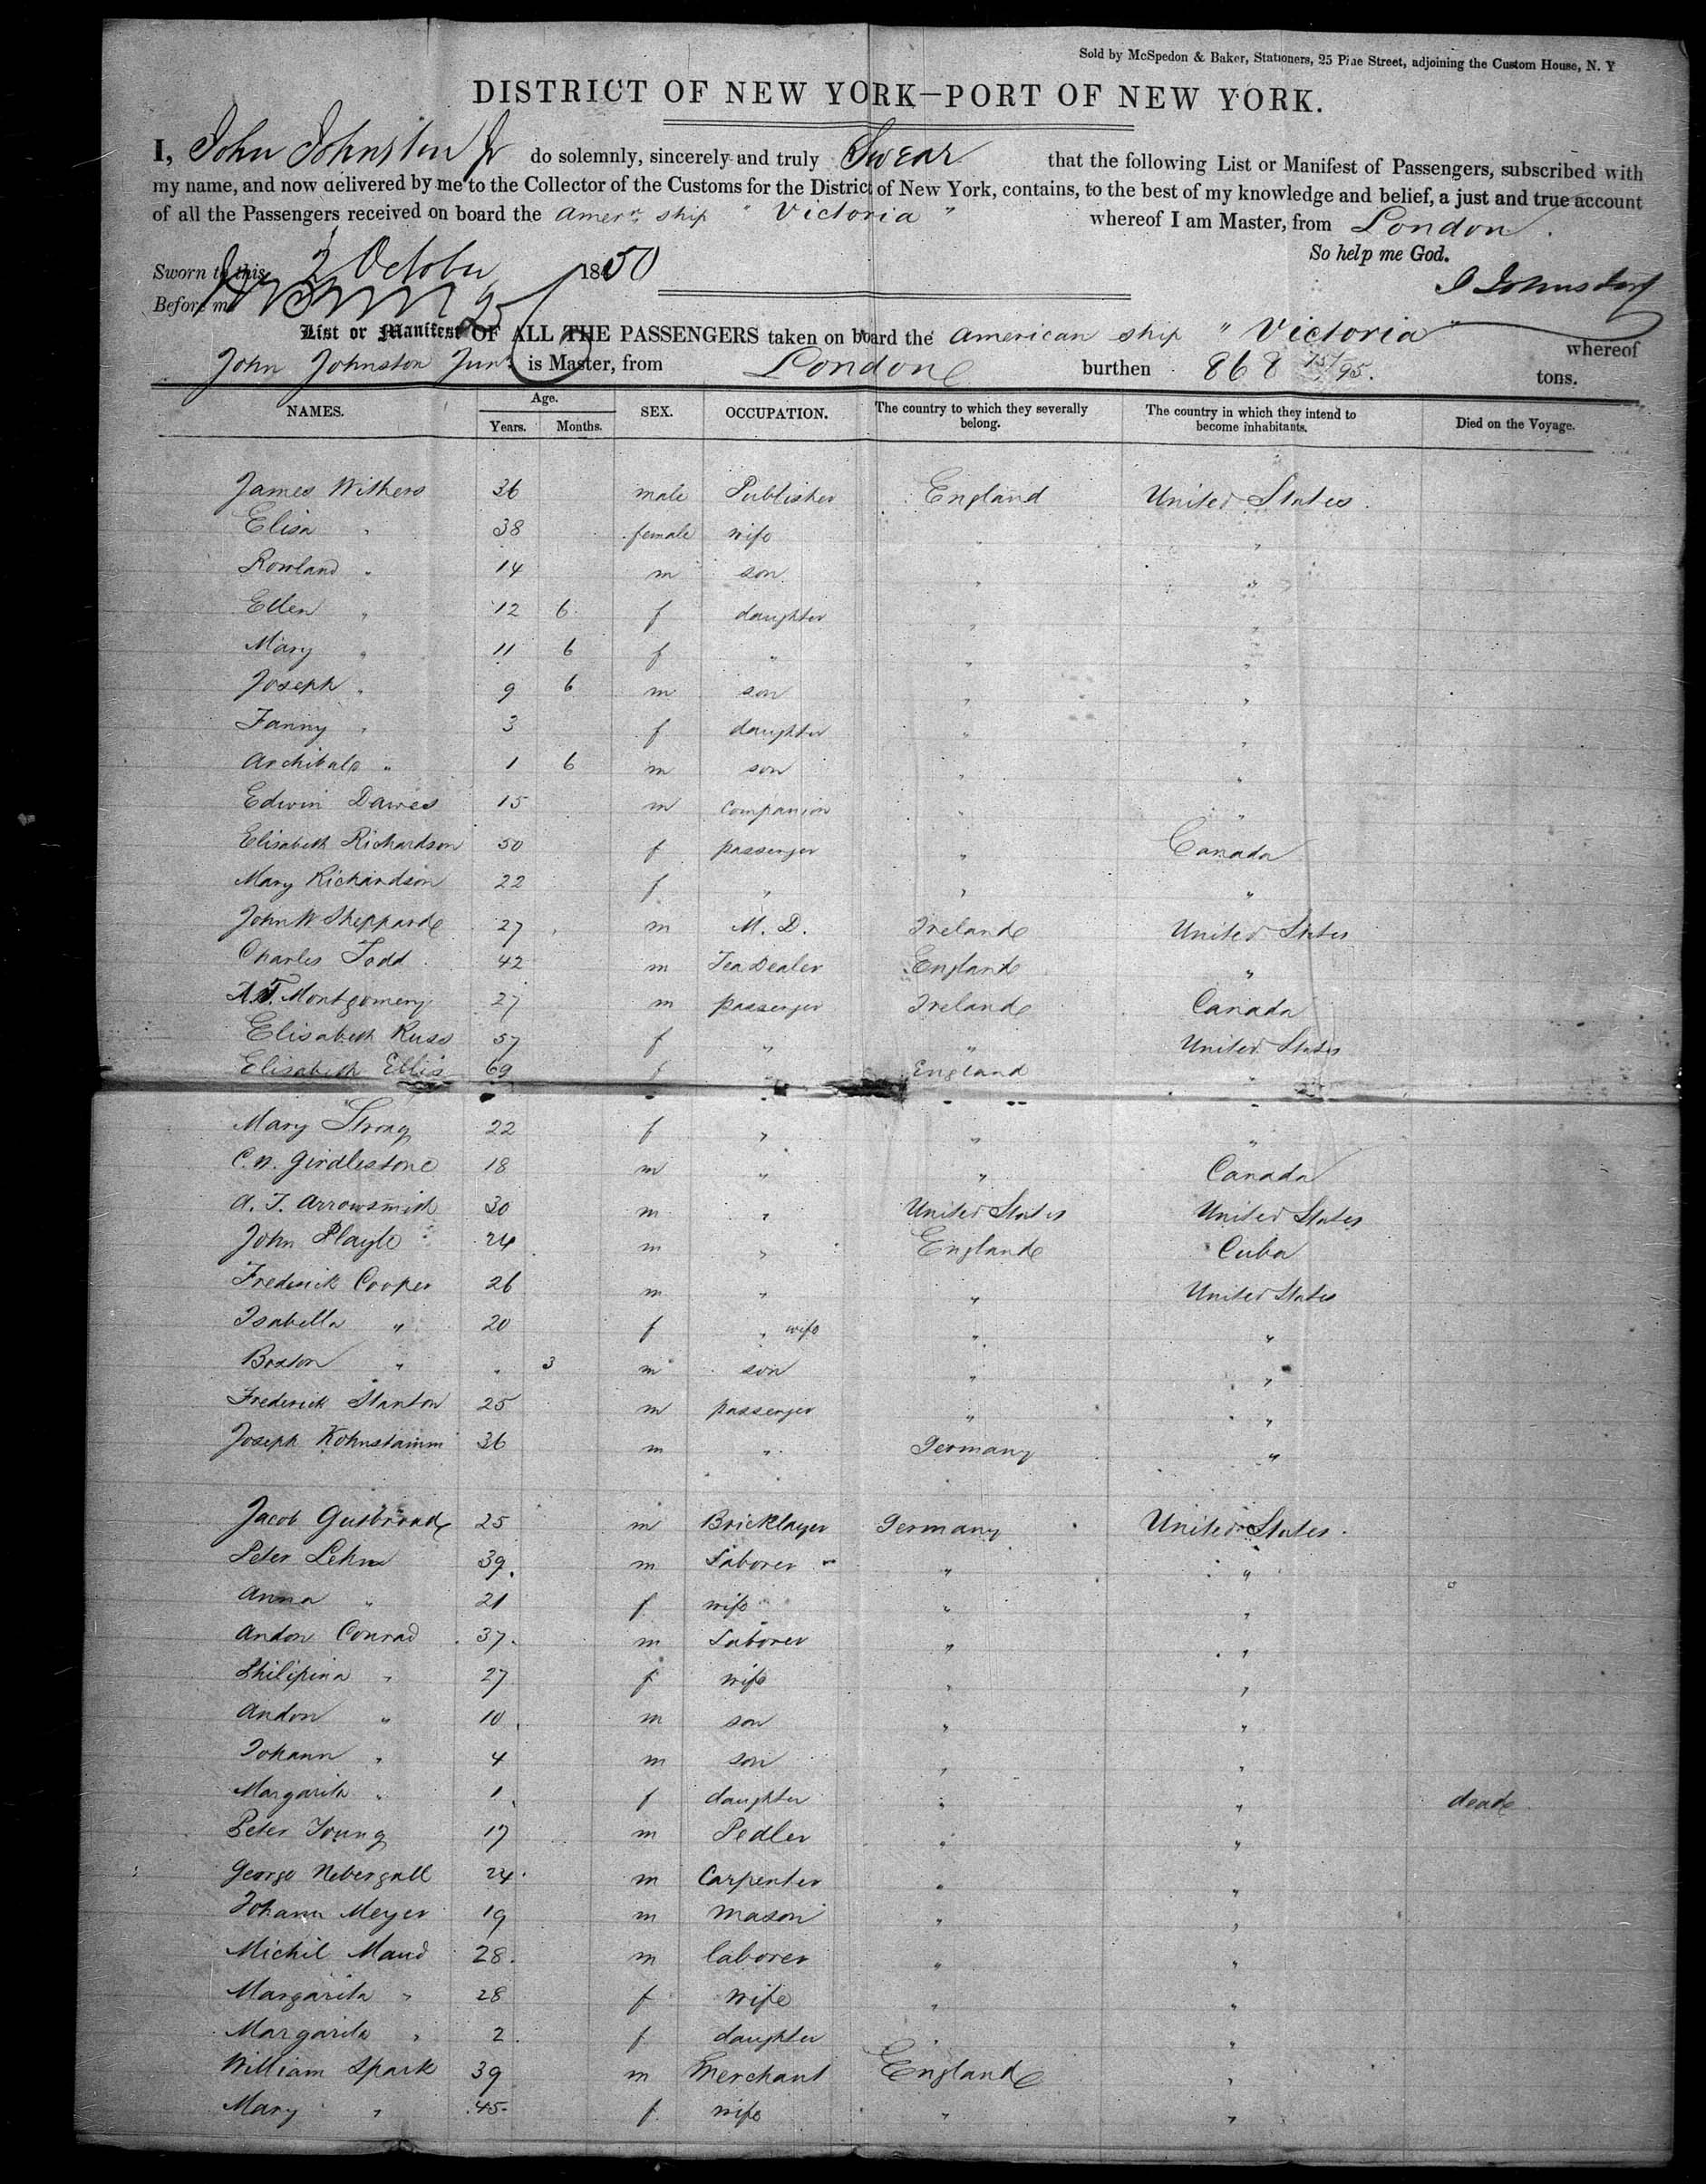 Sold by McSpedon & Baker, Stationers, 25 Pine Street, adjoining the Custom House, N. Y
DISTRICT OF NEW YORK—PORT OF NEW YORK.
I, John Johnston Jr do solemnly, sincerely and truly Swear that the following List or Manifest of Passengers, subscribed with
my name, and now delivered by me to the Collector of the Customs for the District of New York, contains, to the best of my knowledge and belief, a just and true account
of all the Passengers received on board the Amern ship " Victoria " whereof I am Master, from London.
So help me God.
Sworn to this 2 October 1850
J Johnston Jr
Before me
List or Manifest OF ALL THE PASSENGERS taken on board the American ship " Victoria " whereof
John Johnston Junr is Master, from London burthen 868 /95. tons.
NAMES. Age. Years. Months. SEX. OCCUPATION. The country to which they severally belong. The country in which they intend to become inhabitants. Died on the Voyage.
James Withers 36 male Publisher England United States.
Elisa " 38 female wife " "
Rowland " 14 m son " "
Ellen " 12 6 f daughter " "
Mary " 11 6 f " " "
Joseph " 9 6 m son " "
Fanny " 3 f daughter " "
Archibald " 1 6 m son " "
Edwin Dawes 15 m companion " "
Elisabeth Richardson 50 f passenger " Canada
Mary Richardson 22 f " " "
John W Shepparde 27 m M. D. Ireland United States
Charles Todd 42 m Tea Dealer England "
Montgomery 27 m passenger Ireland Canada
Elisabeth Russ 57 f " " United States
Elisabeth Ellis 69 f " England "
Mary Strong 22 f " " "
C. N. Girdlestone 18 m " " Canada
A. T. Arrowsmith 30 m " United States United States
John Playle 24 m " England Cuba
Frederick Cooper 26 m " " United States
Isabella " 20 f " wife " "
Boston " " 3 m son " "
Frederick Stanton 25 m passenger " "
Joseph Kohnstamm 36 m " Germany "
Jacob 25 m Bricklayer Germany United States.
Peter Lehn 39. m Laborer " "
Anna " 21 f wife " "
Andon Conrad 37. m Laborer " "
Philipina " 27 f wife " "
Andon " 10 m son " "
Johann " 4 m son " "
Margarita " 1 f daughter " " dead
Peter Young 17 m Pedler " "
George Nebergall 24 m Carpenter " "
Johann Meyer 19 m Mason " "
Michil Maud 28. m laborer " "
Margarita " 28 f wife " "
Margarita " 2. f daughter " "
William Spark 39 m Merchant England "
Mary " 45 f wife " "